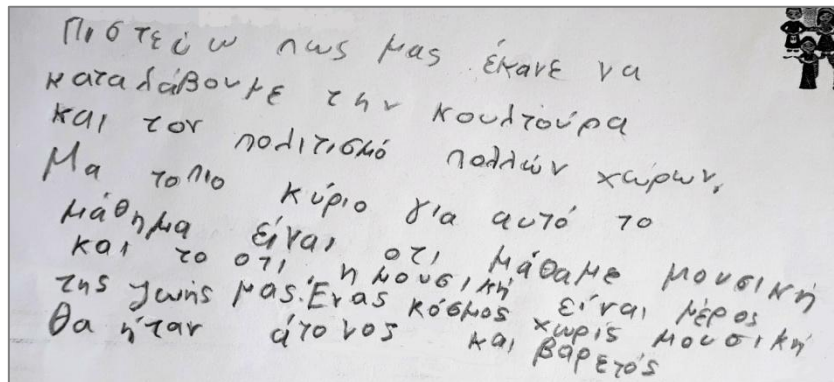 Πιστεύω πως μας έκανε να
καταλάβουμε την κουλτούρα
και τον πολιτισμό πολλών χωρών.
Μα το πιο κύριο για αυτό το
μάθημα είναι οτι μάθαμε μουσική
και το οτι η μουσική είναι μέρος
της ζωής μας. Ένας κόσμος χωρίς μουσική
θα ήταν άτονος και βαρετός